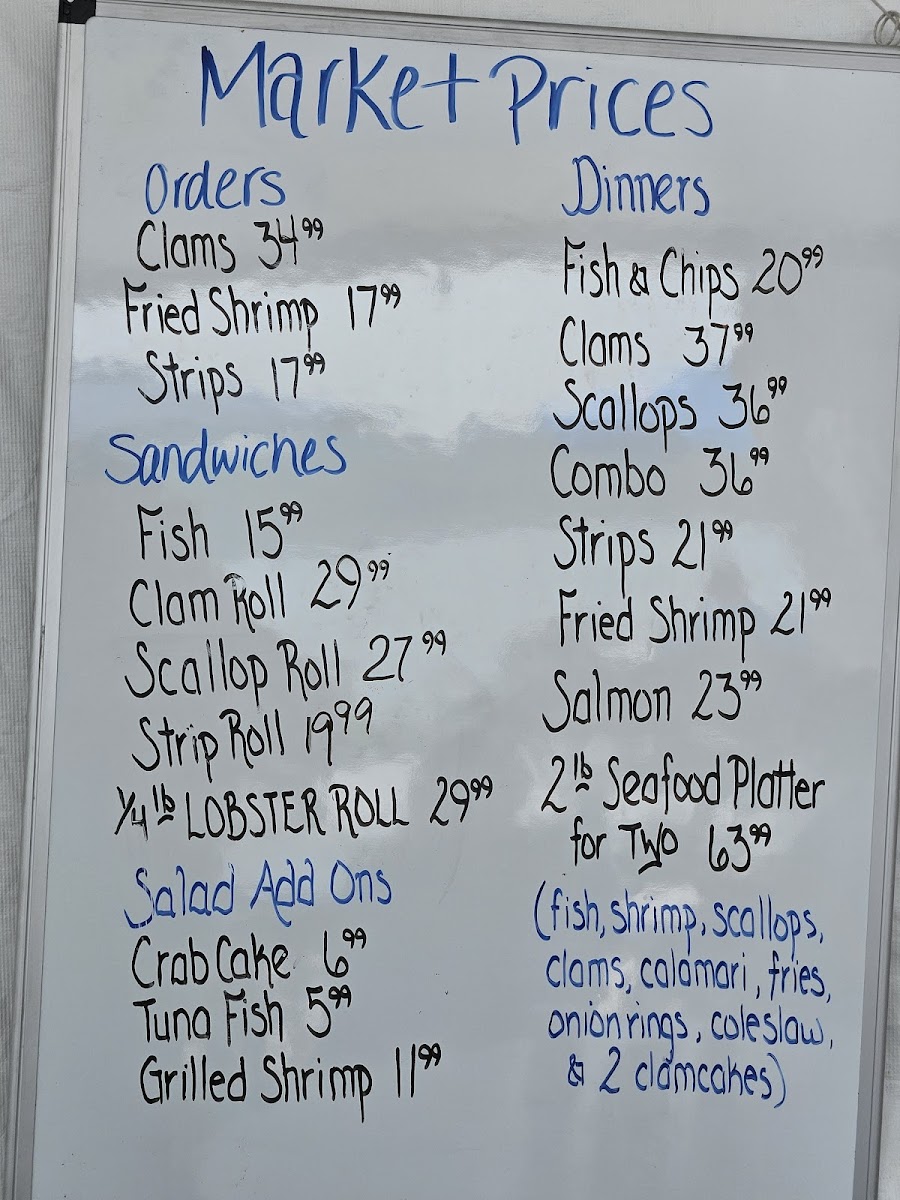 Market Prices
Orders
Clams 34⁹⁹
Fried Shrimp 17⁹⁹
Strips 17⁹⁹
Sandwiches
Fish 15⁹⁹
Clam Roll 29⁹⁹
Scallop Roll 27⁹⁹
Strip Roll 19⁹⁹
1/4 lb LOBSTER ROLL 29⁹⁹
Salad Add Ons
Crab Cake 6⁹⁹
Tuna Fish 5⁹⁹
Grilled Shrimp 11⁹⁹
Dinners
Fish & Chips 20⁹⁹
Clams 37⁹⁹
Scallops 36⁹⁹
Combo 36⁹⁹
Strips 21⁹⁹
Fried Shrimp 21⁹⁹
Salmon 23⁹⁹
2 lb Seafood Platter
for TWO 63⁹⁹
(fish, shrimp, scallops,
clams, calamari, fries,
onion rings, coleslaw,
& 2 clamcakes)